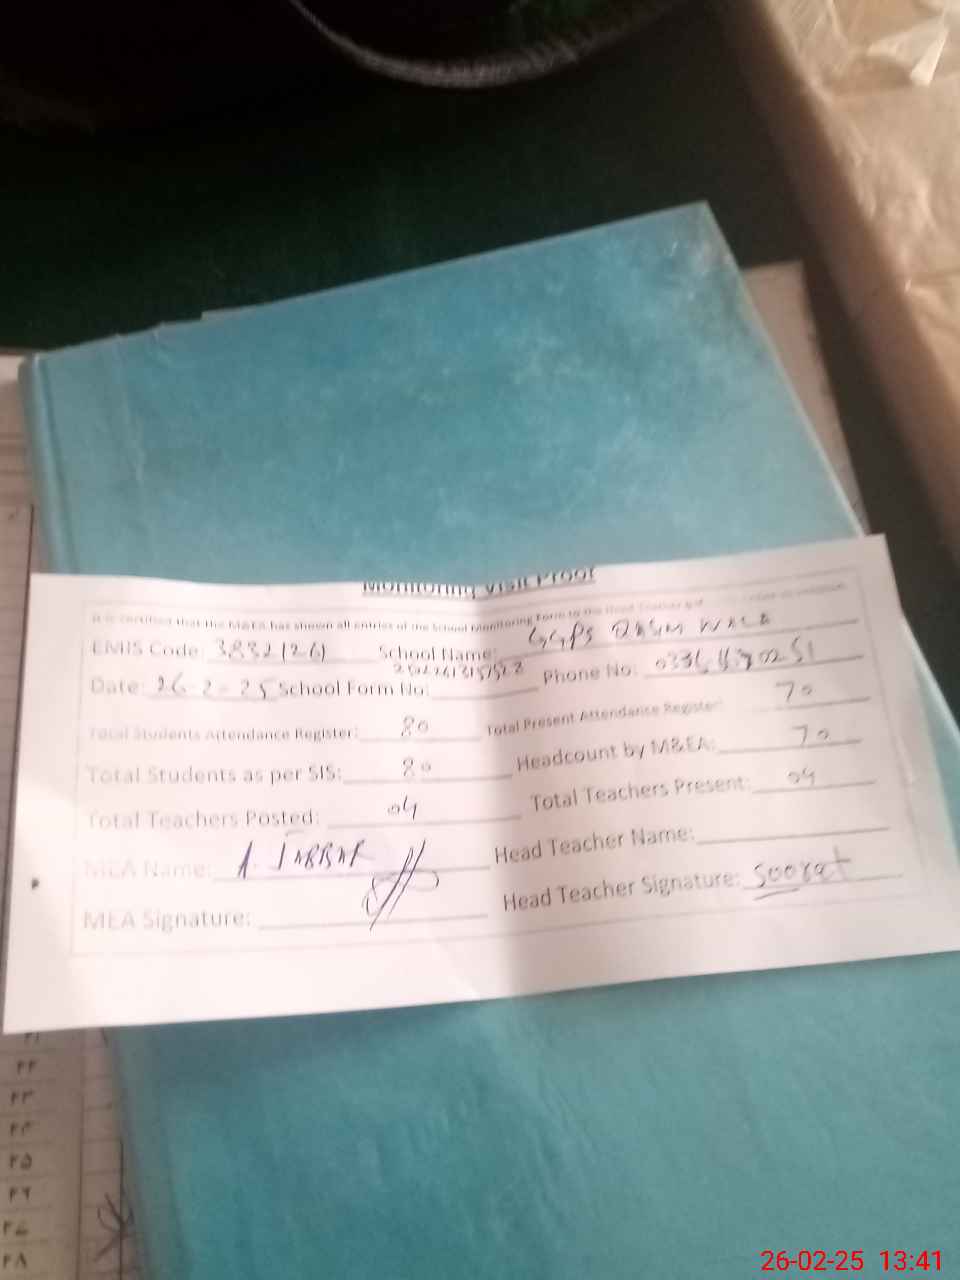 Monitoring Visit Proof
It is certified that the M&EA has shown all entries of the School Monitoring Form to the Head Teacher
EMIS Code: 38321261 School Name: GGPS QASIM WALA
Date: 26-2-25 School Form No: Phone No:
Total Students Attendance Register: 80 Total Present Attendance Register: 70
Total Students as per SIS: 80 Headcount by M&EA: 70
Total Teachers Posted: 04 Total Teachers Present: 04
MEA Name: A. JABBAR Head Teacher Name:
MEA Signature: Head Teacher Signature: soorat
۲۲
۲۳
۲۴
۲۵
۲۶
۲۷
۲۸
26-02-25 13:41